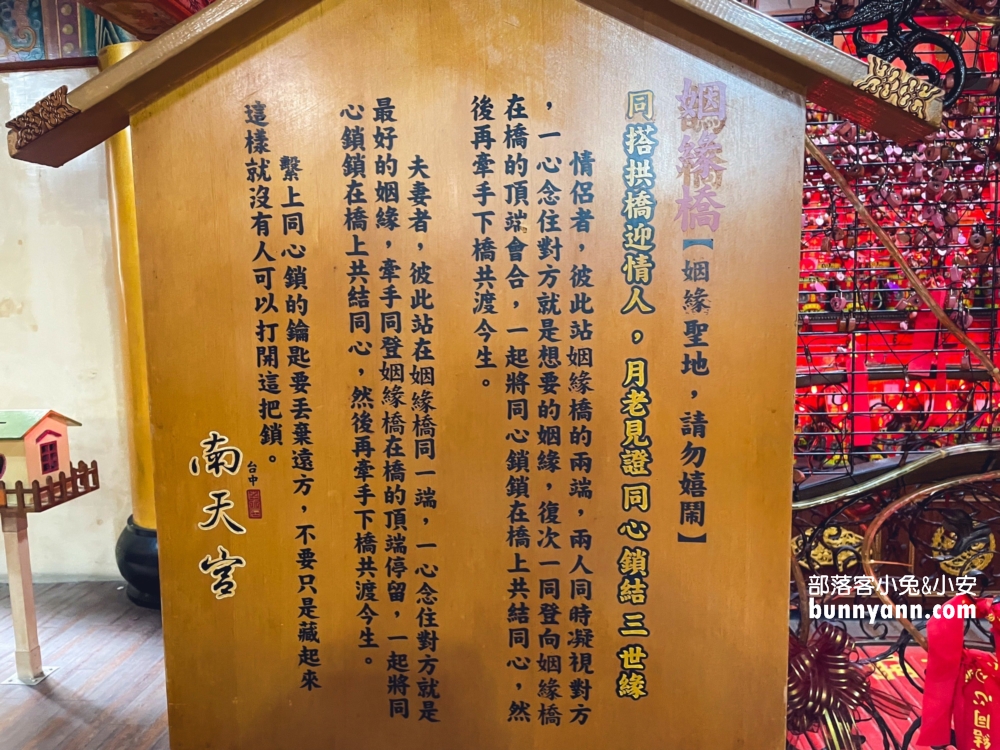 姻緣橋【姻緣聖地，請勿嬉鬧】
同搭拱橋迎情人，月老見證同心鎖結三世緣
情侶者，彼此站姻緣橋的兩端，兩人同時凝視對方
，一心念住對方就是想要的姻緣，復次一同登向姻緣橋
在橋的頂端會合，一起將同心鎖鎖在橋上共結同心，然
後再牽手下橋共渡今生。
夫妻者，彼此站在姻緣橋同一端，一心念住對方就是
最好的姻緣，牽手同登姻緣橋在橋的頂端停留，一起將同
心鎖鎖在橋上共結同心，然後再牽手下橋共渡今生。
繫上同心鎖的鑰匙要丟棄遠方，不要只是藏起來
這樣就沒有人可以打開這把鎖。
台中
南天宮
部落客小兔&小安
bunnyann.com